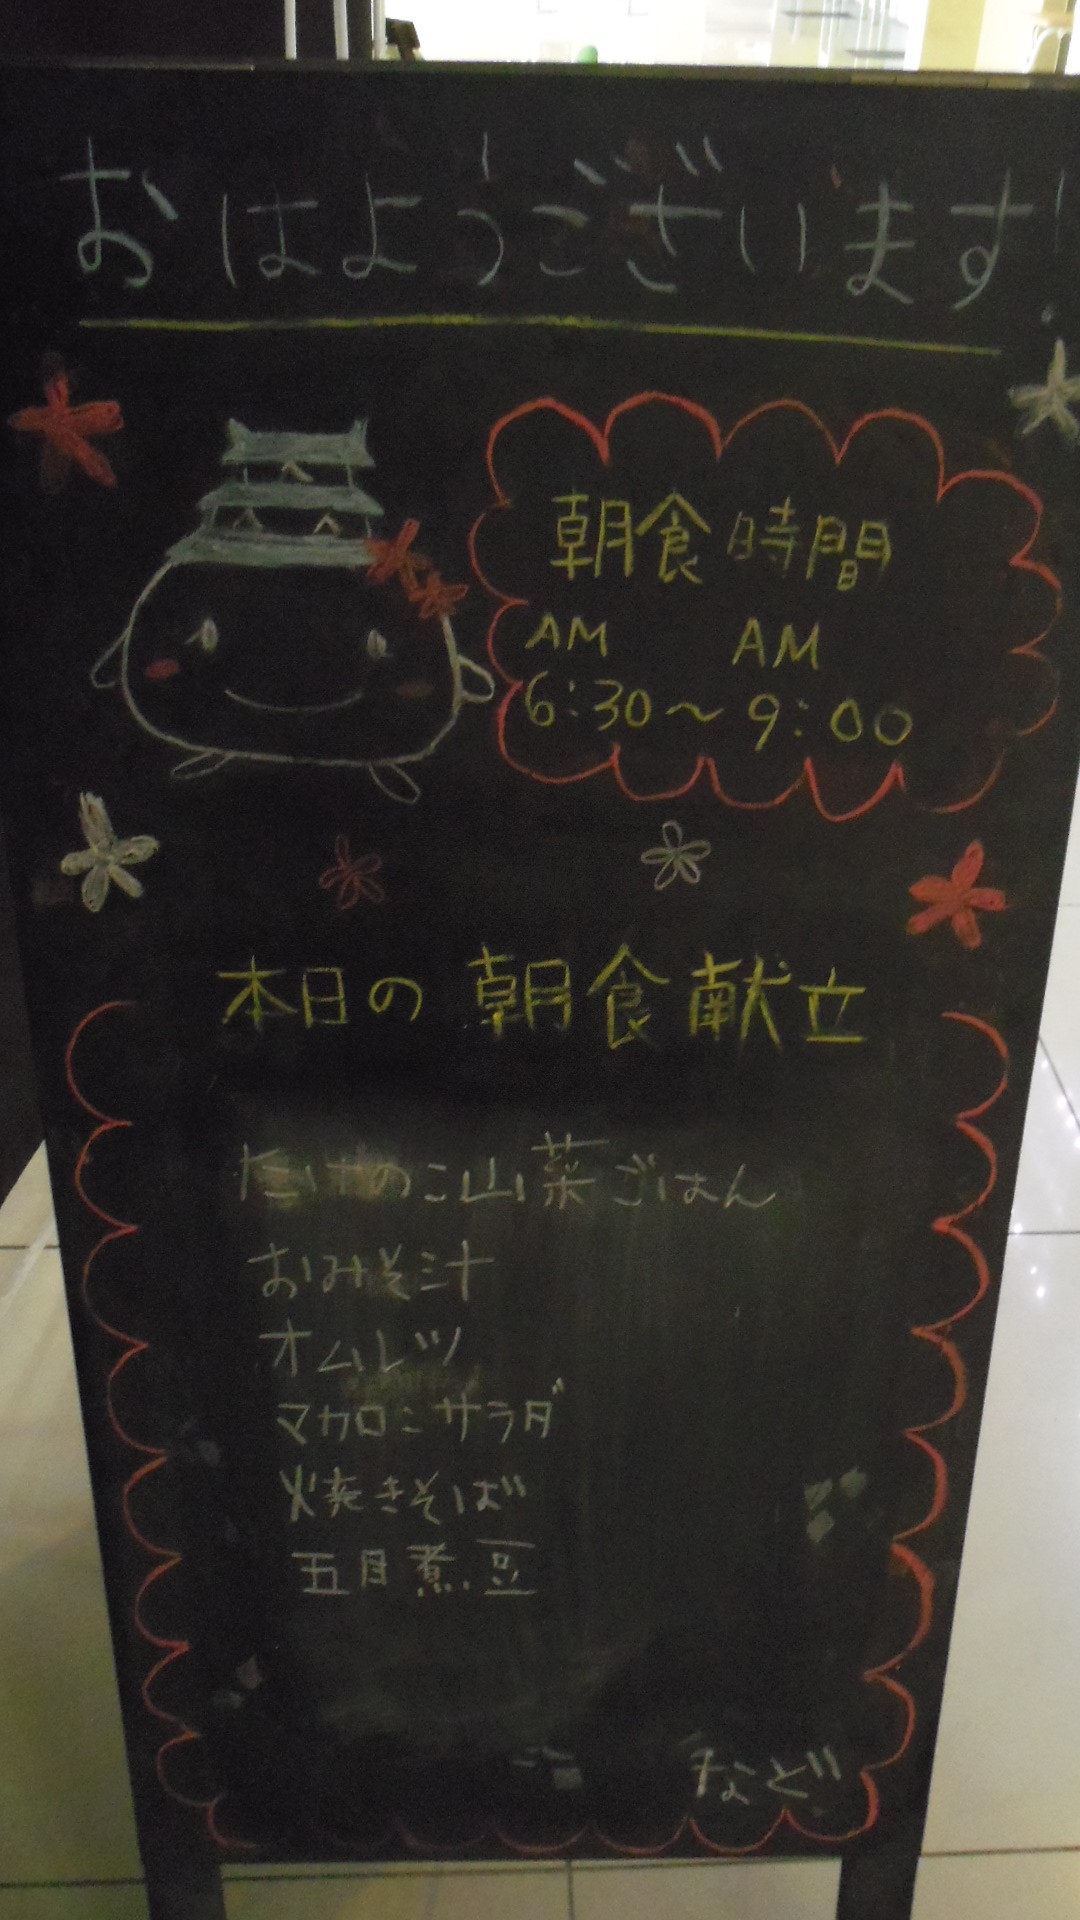 おはようございます!
朝食時間
AM AM
6:30〜9:00
本日の朝食献立
たけのこ山菜ごはん
おみそ汁
オムレツ
マカロニサラダ
焼きそば
五目煮豆
など